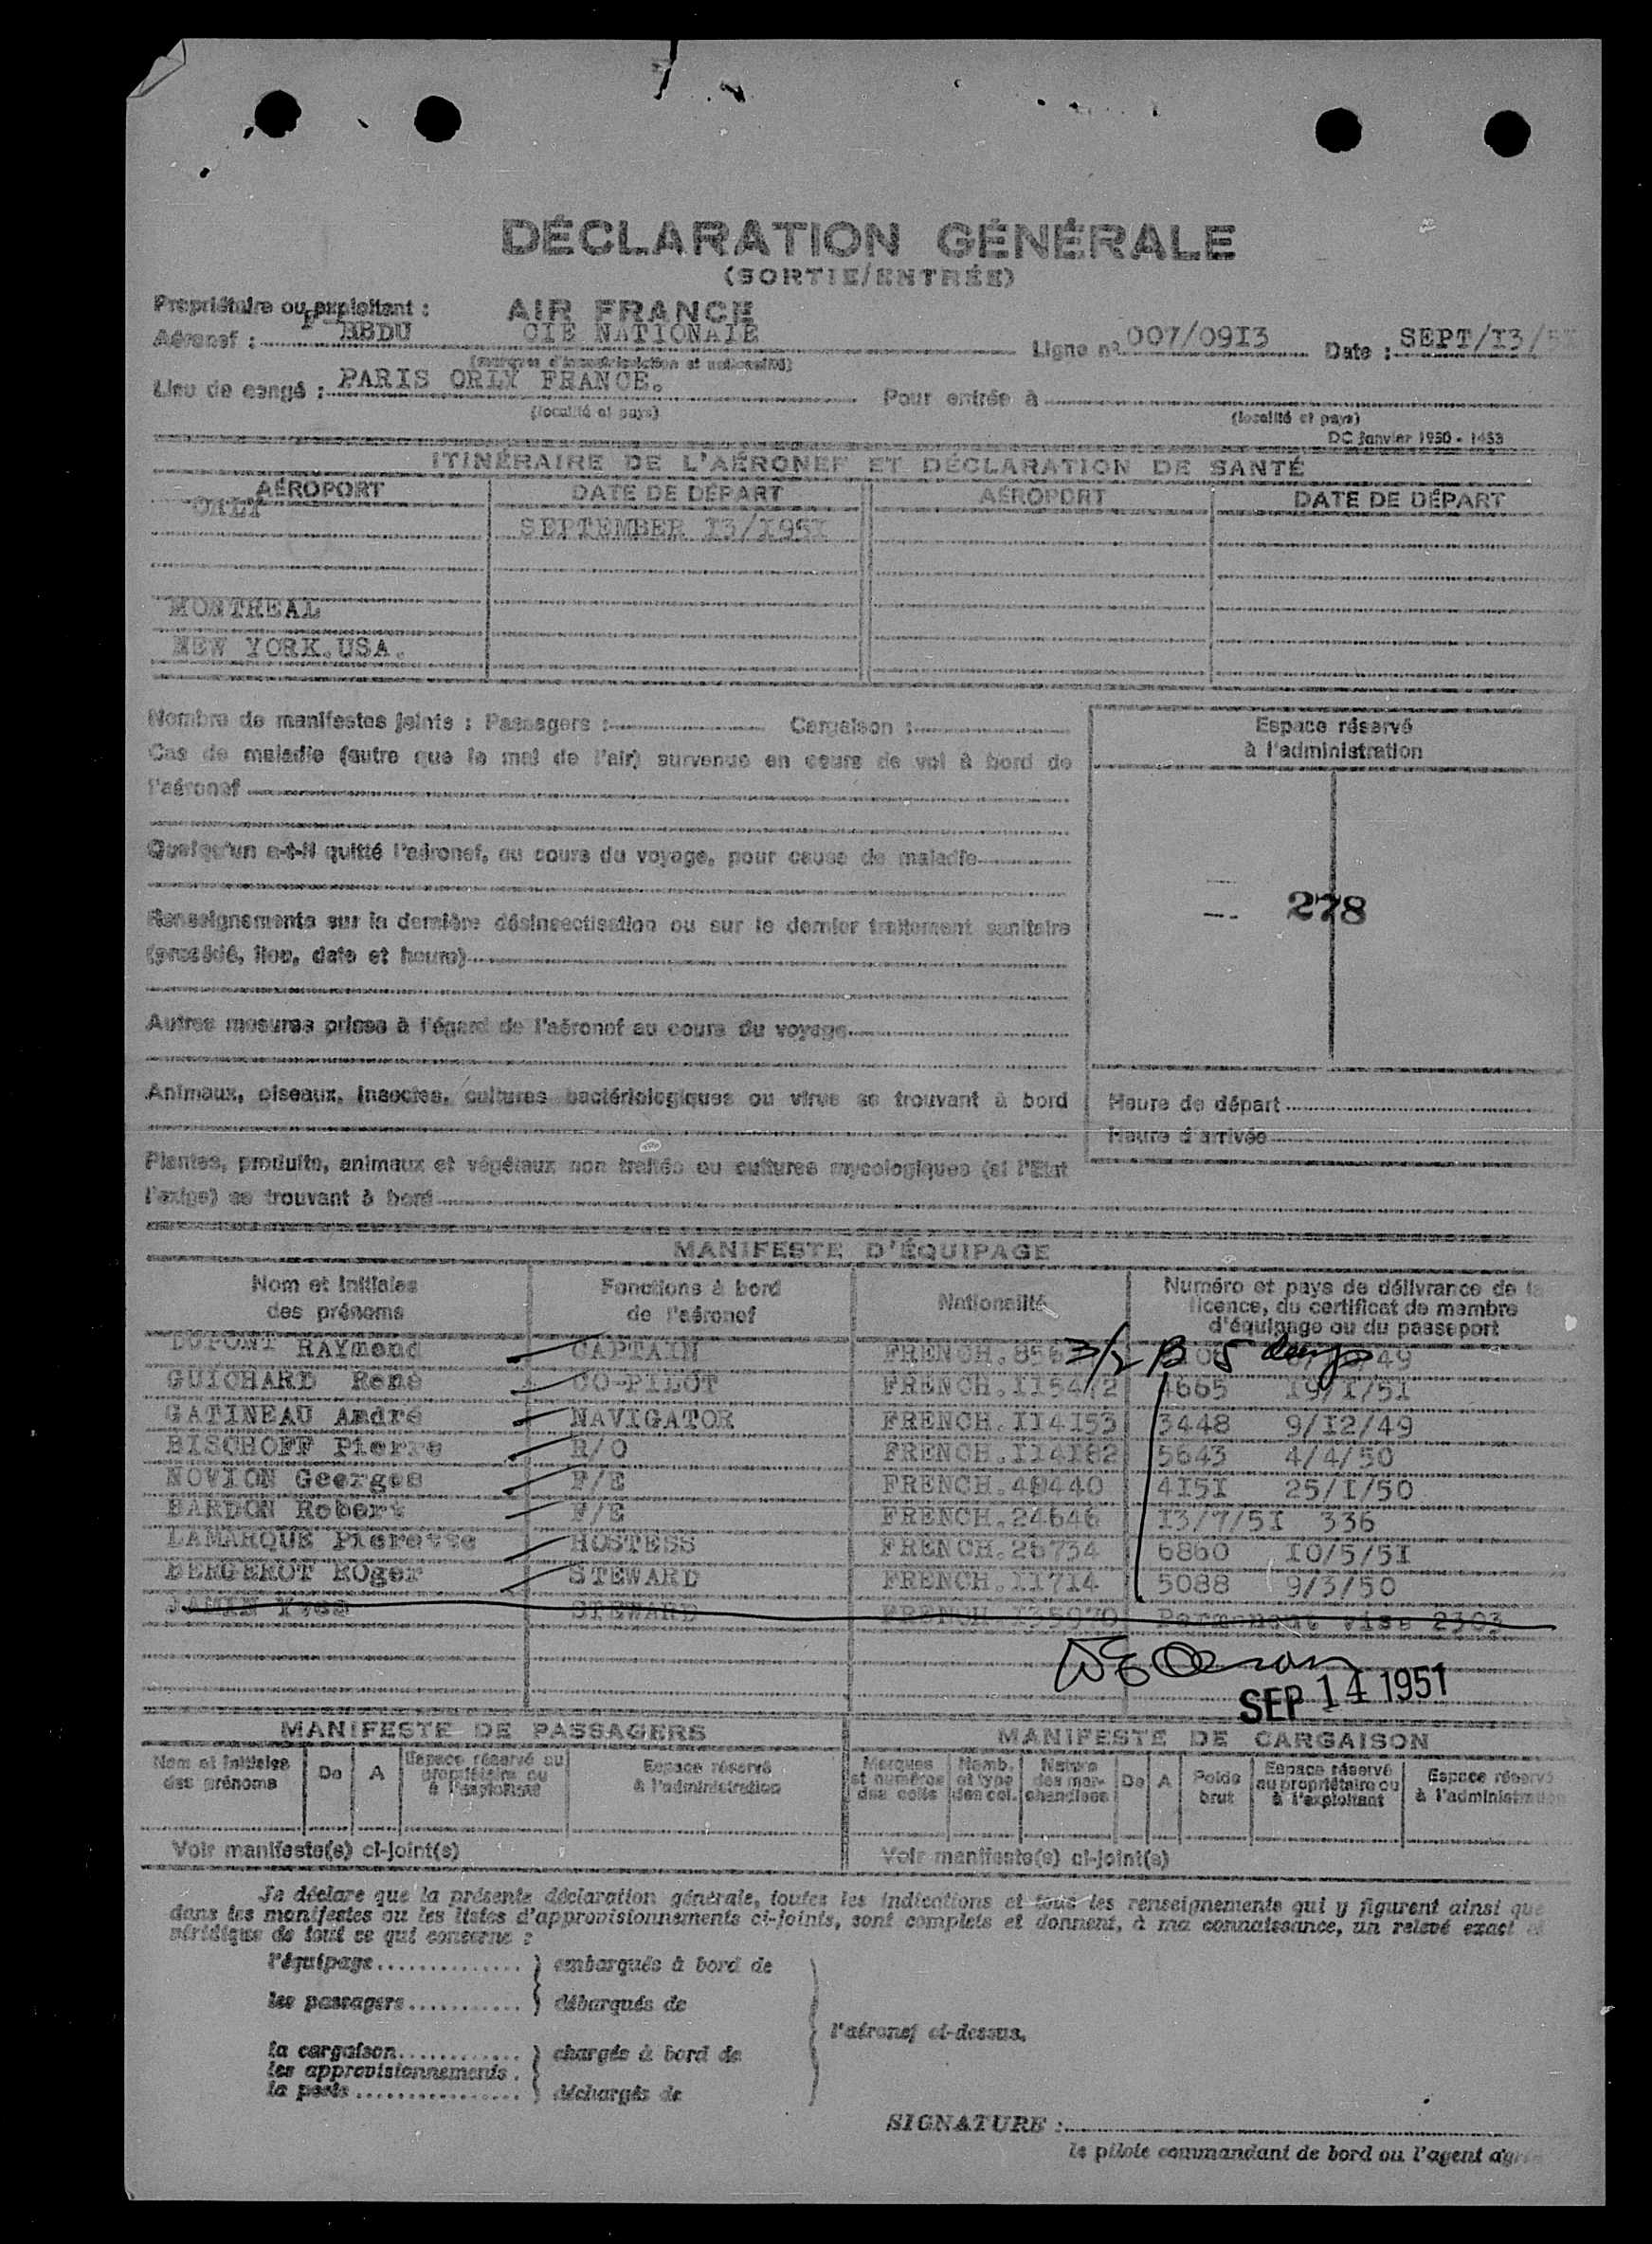 DÉCLARATION GÉNÉRALE
(SORTIE/ENTRÉE)
Propriétaire ou exploitant : AIR FRANCE
Aéronef : F BBDU CIE NATIONALE Ligne nº 007/09I3 Date : SEPT/I3/5
(marques d'immatriculation et nationalité)
Lieu de congé : PARIS ORLY FRANCE. Pour entrée à
(localité et pays) (localité et pays)
DC Janvier 1950 - 1453
ITINÉRAIRE DE L'AÉRONEF ET DÉCLARATION DE SANTÉ
AÉROPORT DATE DE DÉPART AÉROPORT DATE DE DÉPART
ORLY
SEPTEMBER I3/I95I
MONTREAL
NEW YORK.USA.
Nombre de manifestes joints : Passagers : Cargaison :
Espace réservé
à l'administration
Cas de maladie (autre que le mal de l'air) survenue en cours de vol à bord de
l'aéronef
Quelqu'un a-t-il quitté l'aéronef, au cours du voyage, pour cause de maladie
278
Renseignements sur la dernière désinsectisation ou sur le dernier traitement sanitaire
(procédé, lieu, date et heure)
Autres mesures prises à l'égard de l'aéronef au cours du voyage
Animaux, oiseaux, insectes, cultures bactériologiques ou virus se trouvant à bord
Heure de départ
Heure d'arrivée
Plantes, produits, animaux et végétaux non traités ou cultures mycologiques (si l'Etat
l'exige) se trouvant à bord
MANIFESTE D'ÉQUIPAGE
Nom et initiales
des prénoms
Fonctions à bord
de l'aéronef
Nationalité
Numéro et pays de délivrance de la
licence, du certificat de membre
d'équipage ou du passeport
DUPONT RAYmond CAPTAIN FRENCH.856 49
GUICHARD René CO-PILOT FRENCH.II54 2 4665 I9/I/5I
GATINEAU André NAVIGATOR FRENCH.II4I53 3448 9/I2/49
BISCHOFF Pierre R/O FRENCH.II4I82 5643 4/4/50
NOVION Georges F/E FRENCH.40440 4I5I 25/I/50
BARDON Robert F/E FRENCH.24646 I3/7/5I 336
LAMARQUE Pierette HOSTESS FRENCH.26734 6860 I0/5/5I
BERGEROT ROger STEWARD FRENCH.II7I4 5088 9/3/50
JAMIN Yves STEWARD FRENCH.I35970 Permanent visa 2303
SEP 14 1951
MANIFESTE DE PASSAGERS
MANIFESTE DE CARGAISON
Nom et initiales
des prénoms
De A
Espace réservé au
propriétaire ou
à l'exploitant
Espace réservé
à l'administration
Marques
et numéros
des colis
Nomb.
et type
des col.
Nature
des mar-
chandises
De A
Poids
brut
Espace réservé
au propriétaire ou
à l'exploitant
Espace réservé
à l'administration
Voir manifeste(s) ci-joint(s)
Voir manifeste(s) ci-joint(s)
Je déclare que la présente déclaration générale, toutes les indications et tous les renseignements qui y figurent ainsi que
dans les manifestes ou les listes d'approvisionnements ci-joints, sont complets et donnent, à ma connaissance, un relevé exact et
véridique de tout ce qui concerne :
l'équipage } embarqués à bord de
les passagers } débarqués de
l'aéronef ci-dessus.
la cargaison } chargés à bord de
les approvisionnements
la poste } déchargés de
SIGNATURE :
le pilote commandant de bord ou l'agent